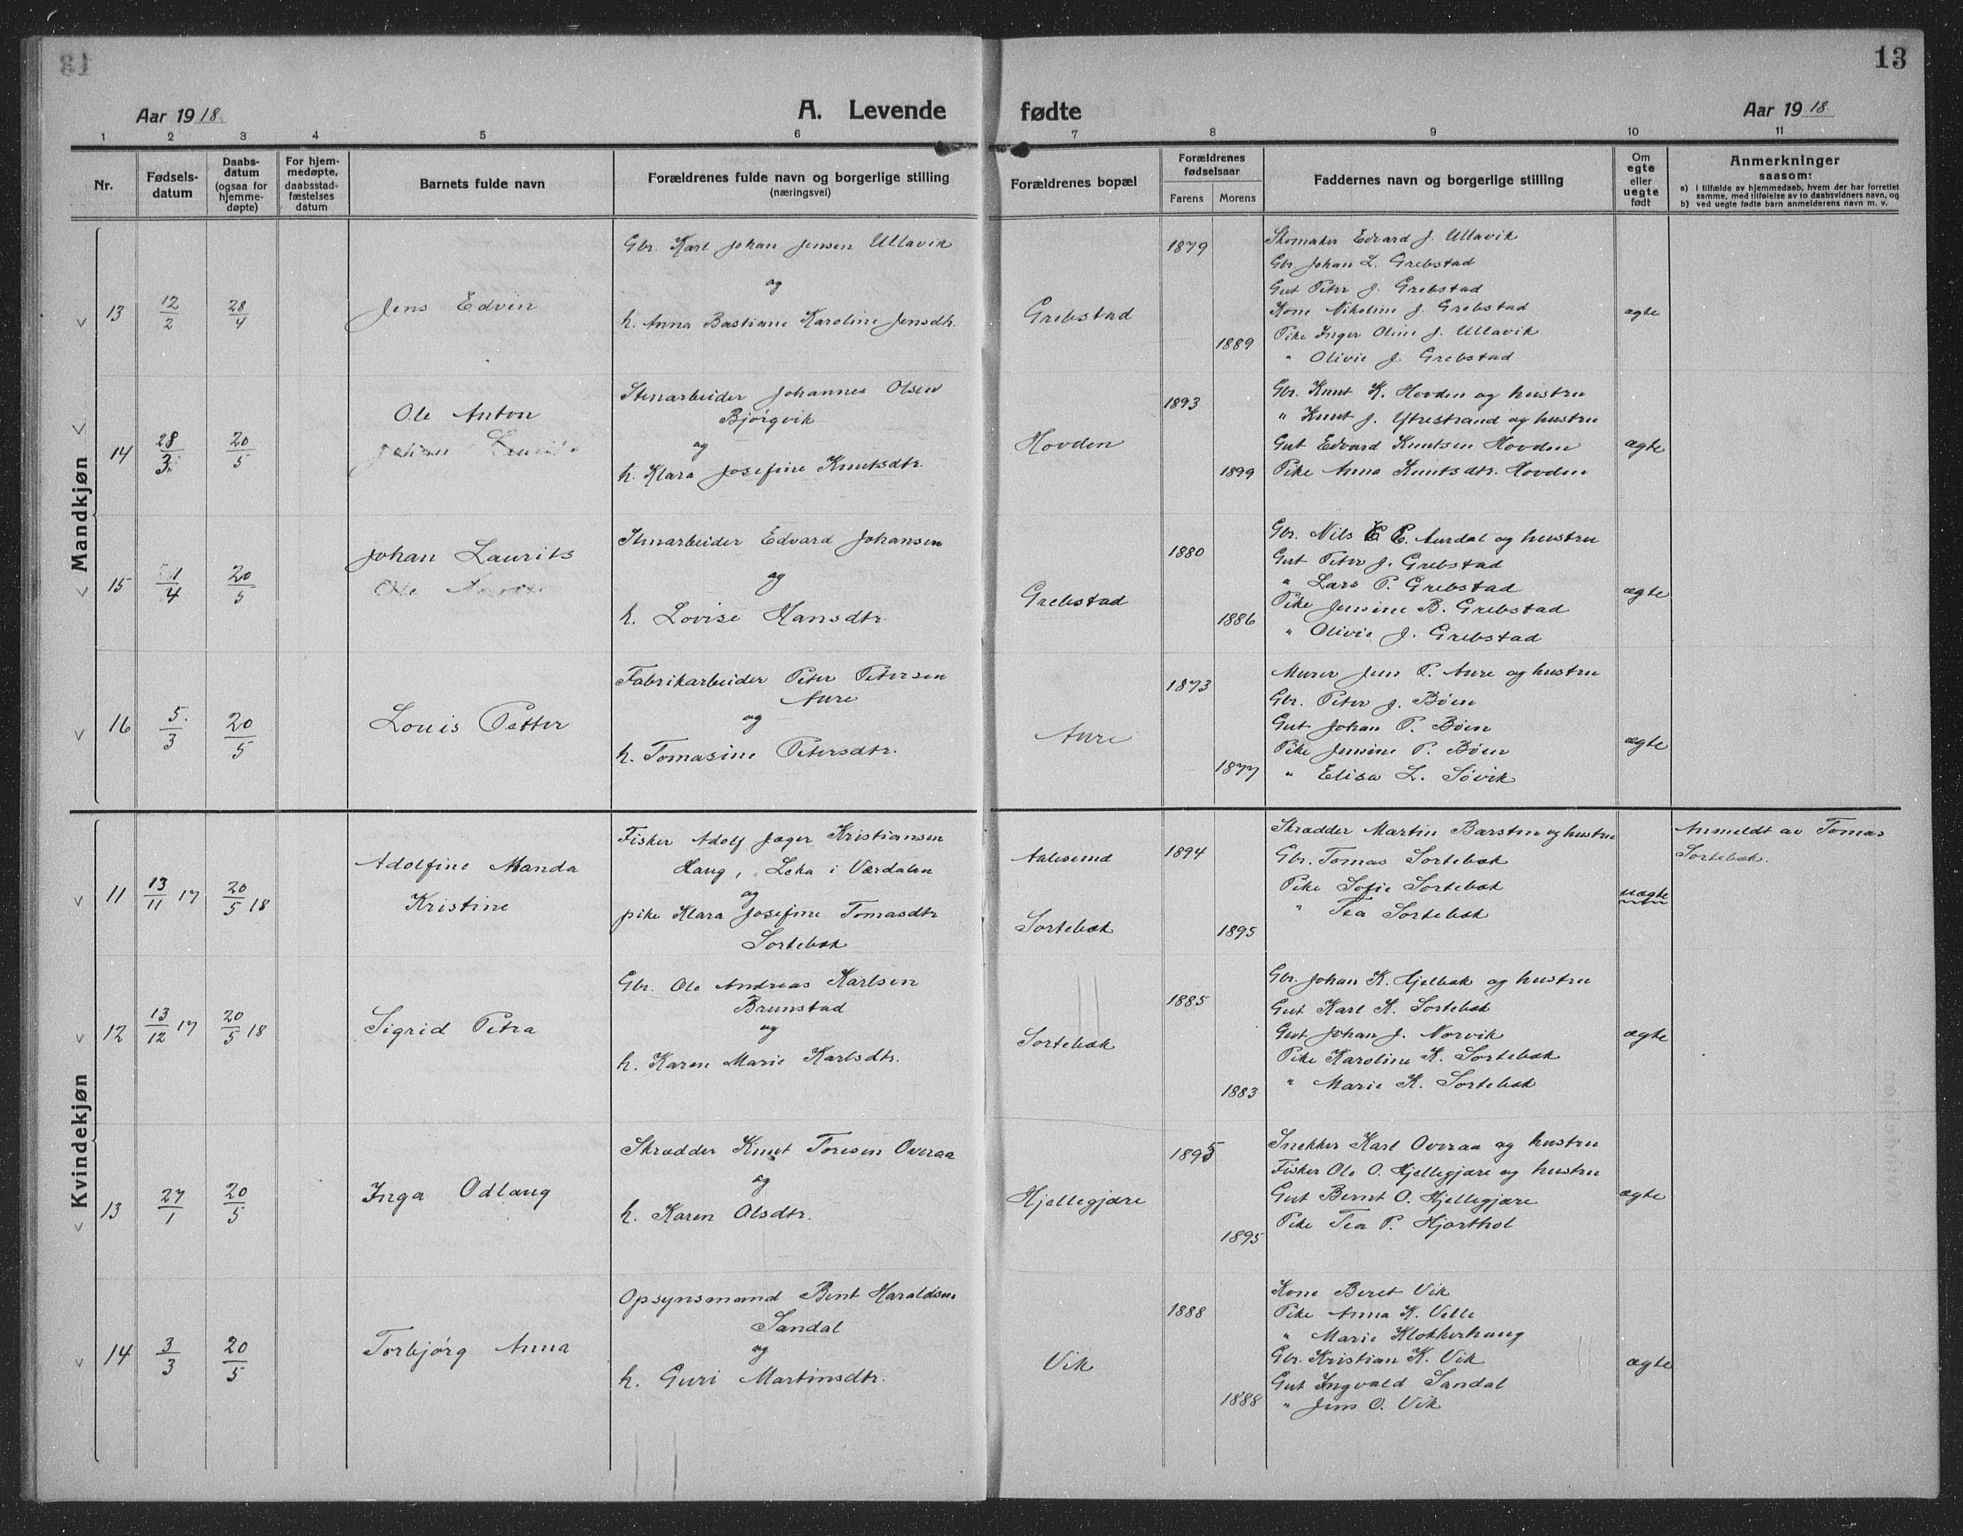 13
Aar 1918.
A. Levende fødte
Aar 1918
1 2 3 4 5 6 7 8 9 10 11
Nr.
Fødsels-
datum
Daabs-
datum
(ogsaa for
hjemme-
døpte)
For hjem-
medøpte,
daabsstad-
fæstelses
datum
Barnets fulde navn
Forældrenes fulde navn og borgerlige stilling
(næringsvei)
Forældrenes bopæl
Forældrenes
fødselsaar
Farens Morens
Faddernes navn og borgerlige stilling
Om
egte
eller
uegte
født
Anmerkninger
saasom:
a) i tilfælde av hjemmedaab, hvem der har forrettet
samme, med tilføielse av to daabsvidners navn, og
b) ved uegte fødte barn anmelderens navn m. v.
Mandkjøn
13 12/2 28/4
Jens Edvin
Gbr. Karl Johan Jensen Ullavik
og
h. Anna Bastiane Karoline Jensdtr.
Grebstad
1879
1889
Skomaker Edvard J. Ullavik
Gbr Johan L. Grebstad
Gut Peter J. Grebstad
Kone Nikoline J. Grebstad
Pike Inger Oline J. Ullavik
" Olivie J. Grebstad
ægte
14 28/3 20/5
Ole Anton
Johan Laurits
Stenarbeider Johannes Olsen
Bjørgvik
og
h. Klara Josefine Knutsdtr.
Hovden
1893
1899
Gbr. Knut K. Hovden og hustru
" Knut J. Ytrestrand og hustru
Gut Edvard Knutsen Hovden
Pike Anna Knutsdtr. Hovden
ægte
15 1/4 20/5
Johan Laurits
Ole Anton
Stenarbeider Edvard Johansen
og
h. Lovise Hansdtr.
Grebstad
1880
1886
Gbr. Nils E. Aurdal og hustru
Gut Peter J. Grebstad
" Lars P. Grebstad
Pike Jensine B. Grebstad
" Olivie J. Grebstad
ægte
16 5/3 20/5
Louis Petter
Fabrikarbeider Peter Petersen
Aure
og
h. Tomasine Petersdtr.
Aure
1873
1877
Murer Jens P. Aure og hustru
Gbr. Peter J. Bøen
Gut Johan P. Bøen
Pike Jensine P. Bøen
" Elisa L. Søvik
ægte
Kvindekjøn
11 13/11 17 20/5 18
Adolfine Manda
Kristine
Fisker Adolf Jæger Kristiansen
Haug, Leka i Værdalen
og
pike Klara Josefine Tomasdtr
Sortebæk
Aalesund
Sortebæk
1894
1895
Skrædder Martin Barsten og hustru
Gbr. Tomas Sortebæk
Pike Sofie Sortebæk
" Tea Sortebæk
uægte
Anmeldt av Tomas
Sortebæk.
12 13/12 17 20/5 18
Sigrid Petra
Gbr. Ole Andreas Karlsen
Brunstad
og
h. Karen Marie Karlsdtr.
Sortebæk
1885
1883
Gbr. Johan K. Hjelbak og hustru
Gut Karl K. Sortebæk
Gut Johan J. Norvik
Pike Karoline K. Sortebæk
" Marie K. Sortebæk
ægte
13 27/1 20/5
Inga Odlaug
Skrædder Knut Toresen Overaa
og
h. Karen Olsdtr.
Hjellegjære
1895
1895
Snekker Karl Overaa og hustru
Fisker Ole O. Hjellegjære og hustru
Gut Bernt O. Hjellegjære
Pike Tea P. Hjorthol
ægte
14 3/3 20/5
Torbjørg Anna
Opsynsmand Bent Haraldsen
Sandal
og
h. Guri Martinsdtr.
Vik
1888
1888
Kone Beret Vik
Pike Anna K. Velle
" Marie Klokkerhaug
Gbr. Kristian K. Vik
Gut Ingvald Sandal
" Jens O. Vik
ægte